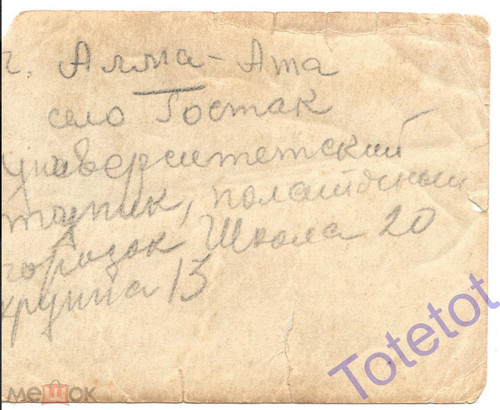 г. Алма-Ата
село Гостак
университетский
тупик,
городок Школа 20
группа 13
Totetot
мешок